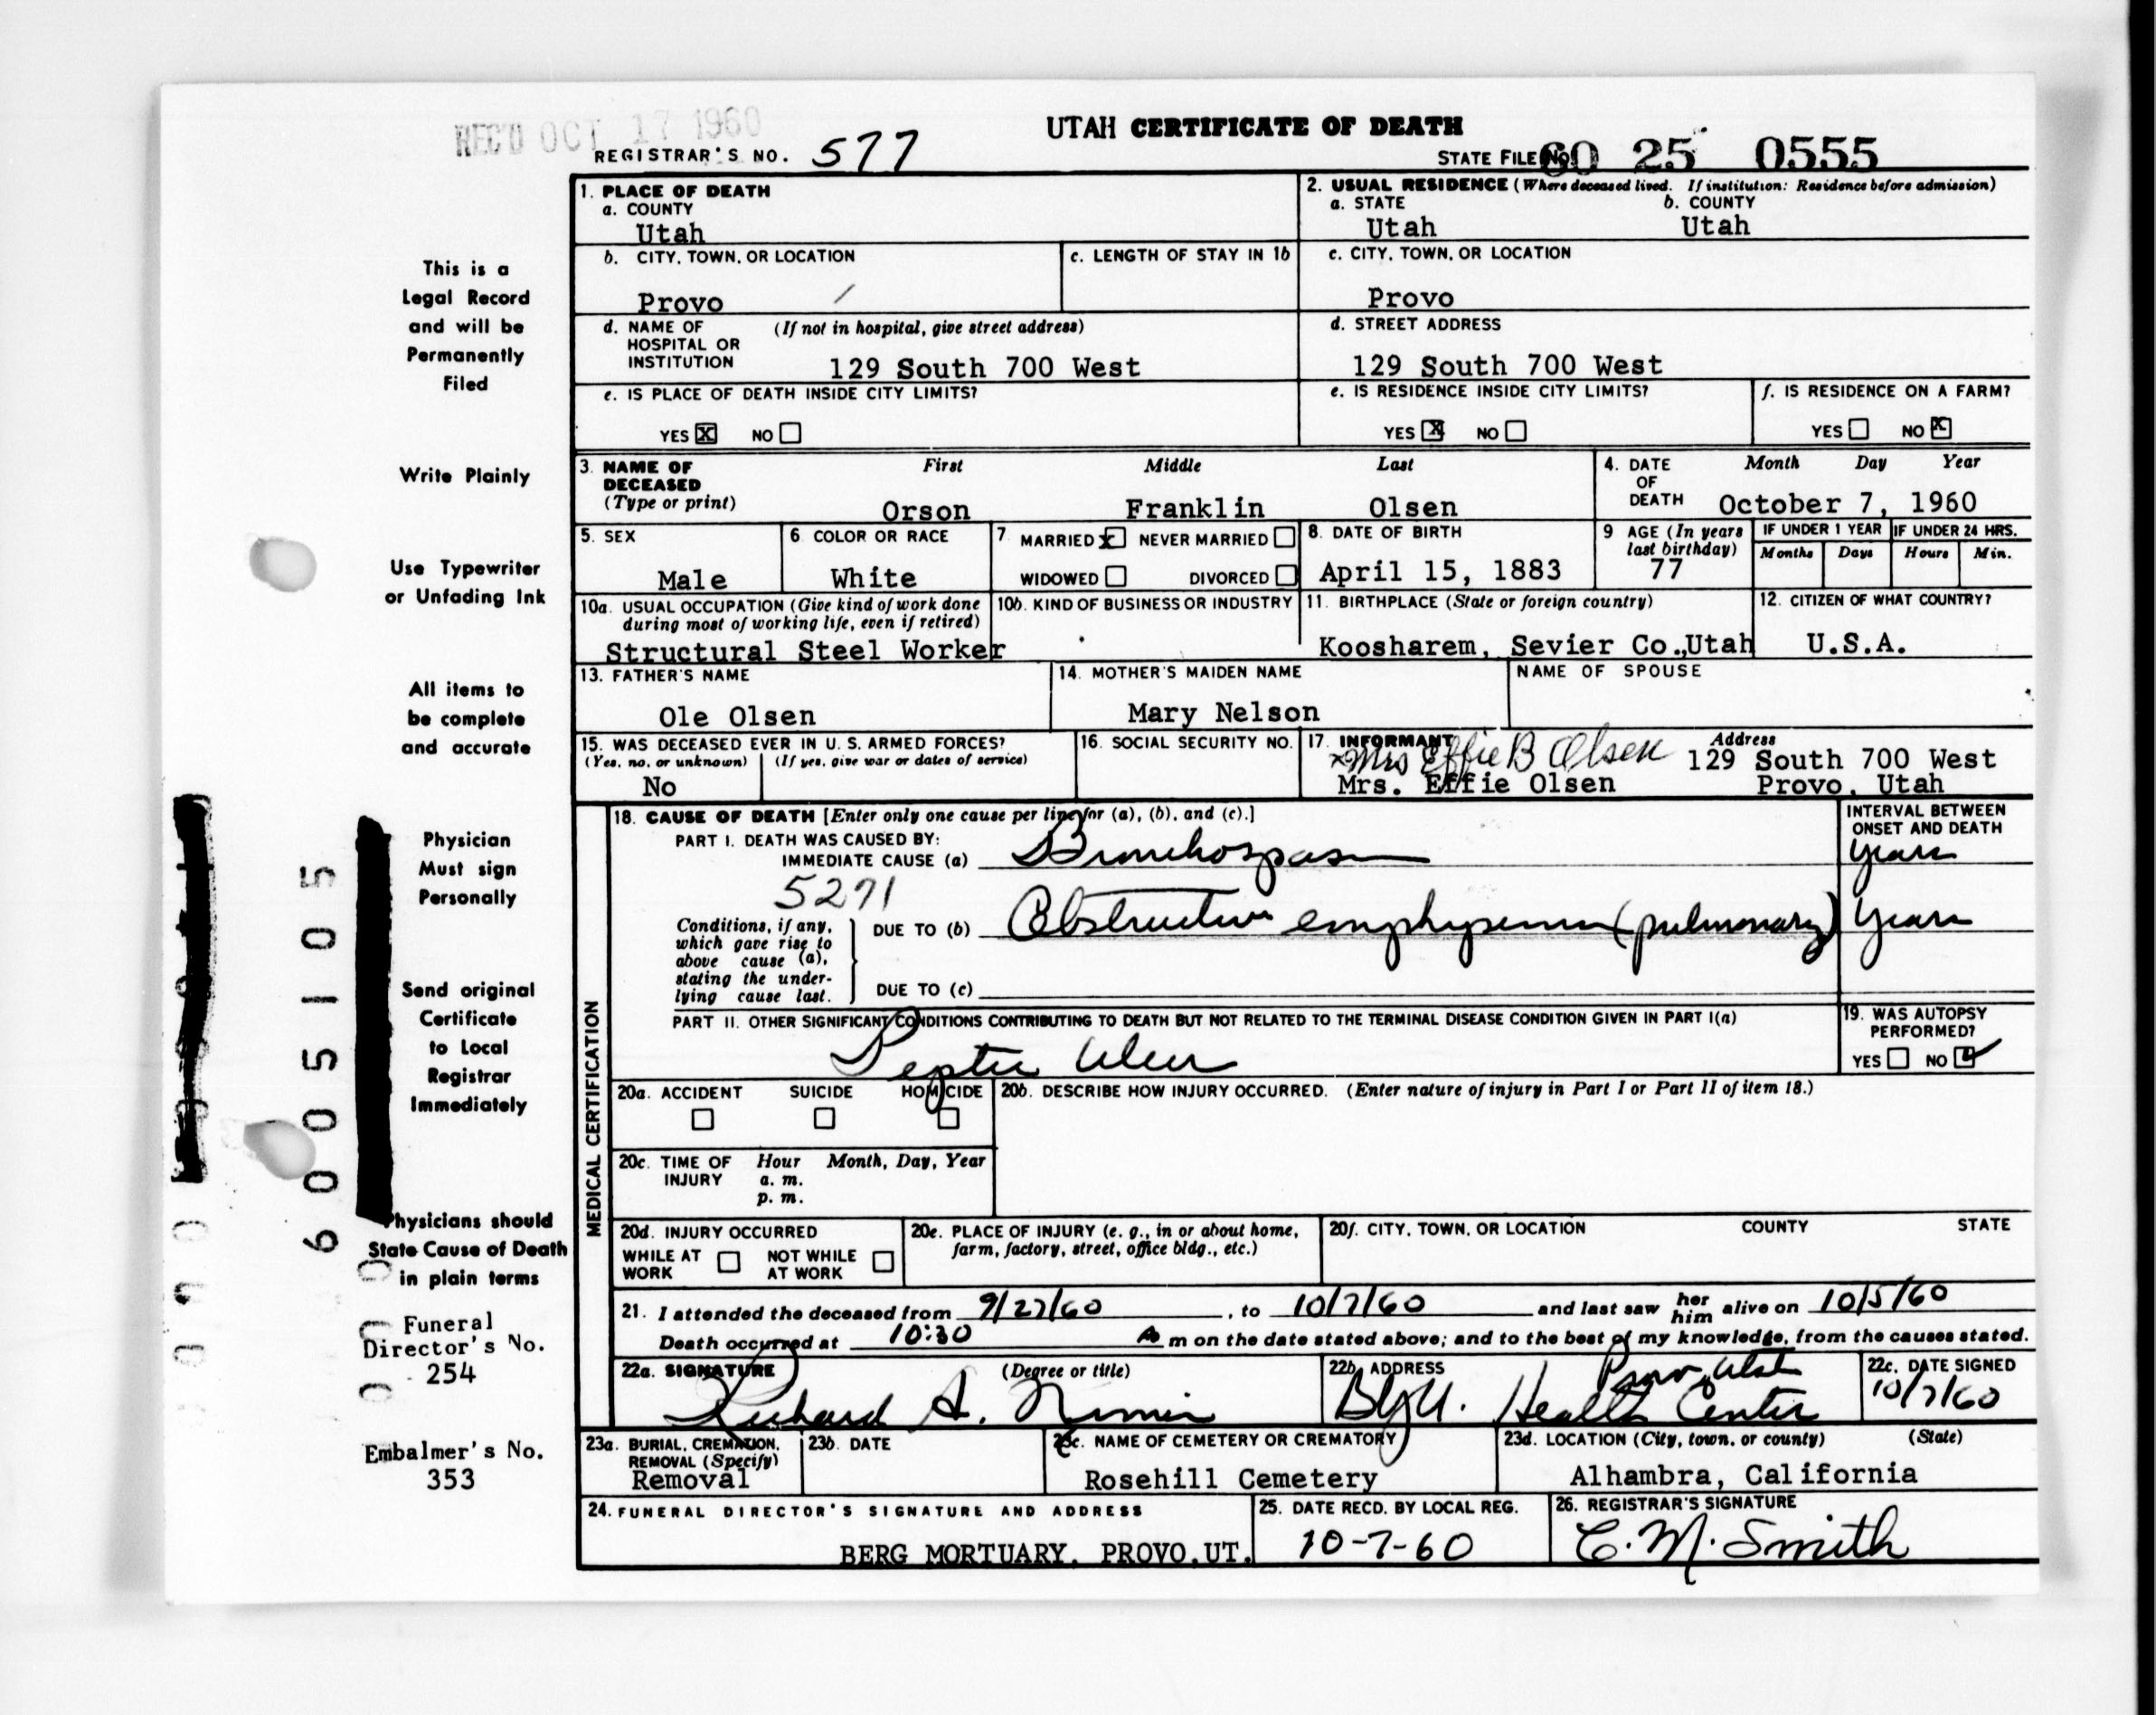 REC'D OCT 17 1960
UTAH CERTIFICATE OF DEATH
REGISTRAR'S NO. 577
STATE FILE No. 60 25 0555
1. PLACE OF DEATH
a. COUNTY
Utah
2. USUAL RESIDENCE (Where deceased lived. If institution: Residence before admission)
a. STATE b. COUNTY
Utah Utah
b. CITY, TOWN, OR LOCATION
Provo
c. LENGTH OF STAY IN 1b
c. CITY, TOWN, OR LOCATION
Provo
d. NAME OF HOSPITAL OR INSTITUTION (If not in hospital, give street address)
129 South 700 West
d. STREET ADDRESS
129 South 700 West
e. IS PLACE OF DEATH INSIDE CITY LIMITS?
YES X NO
e. IS RESIDENCE INSIDE CITY LIMITS?
YES X NO
f. IS RESIDENCE ON A FARM?
YES NO X
3. NAME OF DECEASED (Type or print)
First Middle Last
Orson Franklin Olsen
4. DATE OF DEATH
Month Day Year
October 7, 1960
5. SEX
Male
6 COLOR OR RACE
White
7 MARRIED X NEVER MARRIED
WIDOWED DIVORCED
8. DATE OF BIRTH
April 15, 1883
9 AGE (In years last birthday)
77
IF UNDER 1 YEAR IF UNDER 24 HRS.
Months Days Hours Min.
10a. USUAL OCCUPATION (Give kind of work done during most of working life, even if retired)
Structural Steel Worker
10b. KIND OF BUSINESS OR INDUSTRY
11. BIRTHPLACE (State or foreign country)
Koosharem, Sevier Co., Utah
12. CITIZEN OF WHAT COUNTRY?
U.S.A.
13. FATHER'S NAME
Ole Olsen
14. MOTHER'S MAIDEN NAME
Mary Nelson
NAME OF SPOUSE
15. WAS DECEASED EVER IN U. S. ARMED FORCES?
(Yes, no, or unknown) (If yes, give war or dates of service)
No
16. SOCIAL SECURITY NO.
17. INFORMANT Address
x Mrs Effie B Olsen 129 South 700 West
Mrs. Effie Olsen Provo, Utah
MEDICAL CERTIFICATION
18. CAUSE OF DEATH [Enter only one cause per line for (a), (b), and (c).]
INTERVAL BETWEEN ONSET AND DEATH
PART I. DEATH WAS CAUSED BY:
IMMEDIATE CAUSE (a) Bronchospasm years
5271
Conditions, if any, which gave rise to above cause (a), stating the underlying cause last.
DUE TO (b) Obstructive emphysema (pulmonary) years
DUE TO (c)
PART II. OTHER SIGNIFICANT CONDITIONS CONTRIBUTING TO DEATH BUT NOT RELATED TO THE TERMINAL DISEASE CONDITION GIVEN IN PART I(a)
Peptic Ulcer
19. WAS AUTOPSY PERFORMED?
YES NO ✓
20a. ACCIDENT SUICIDE HOMICIDE
20b. DESCRIBE HOW INJURY OCCURRED. (Enter nature of injury in Part I or Part II of item 18.)
20c. TIME OF INJURY Hour Month, Day, Year
a. m.
p. m.
20d. INJURY OCCURRED
WHILE AT WORK NOT WHILE AT WORK
20e. PLACE OF INJURY (e. g., in or about home, farm, factory, street, office bldg., etc.)
20f. CITY, TOWN, OR LOCATION COUNTY STATE
21. I attended the deceased from 9/27/60, to 10/7/60 and last saw her him alive on 10/5/60
Death occurred at 10:30 A m on the date stated above; and to the best of my knowledge, from the causes stated.
22a. SIGNATURE (Degree or title)
Richard A. Nimer
22b. ADDRESS
Provo, Utah
BYU. Health Center
22c. DATE SIGNED
10/7/60
23a. BURIAL, CREMATION, REMOVAL (Specify)
Removal
23b. DATE
23c. NAME OF CEMETERY OR CREMATORY
Rosehill Cemetery
23d. LOCATION (City, town, or county) (State)
Alhambra, California
24. FUNERAL DIRECTOR'S SIGNATURE AND ADDRESS
BERG MORTUARY, PROVO, UT.
25. DATE RECD. BY LOCAL REG.
10-7-60
26. REGISTRAR'S SIGNATURE
C. M. Smith
This is a
Legal Record
and will be
Permanently
Filed
Write Plainly
Use Typewriter
or Unfading Ink
All items to
be complete
and accurate
Physician
Must sign
Personally
Send original
Certificate
to Local
Registrar
Immediately
Physicians should
State Cause of Death
in plain terms
Funeral
Director's No.
254
Embalmer's No.
353
6005105